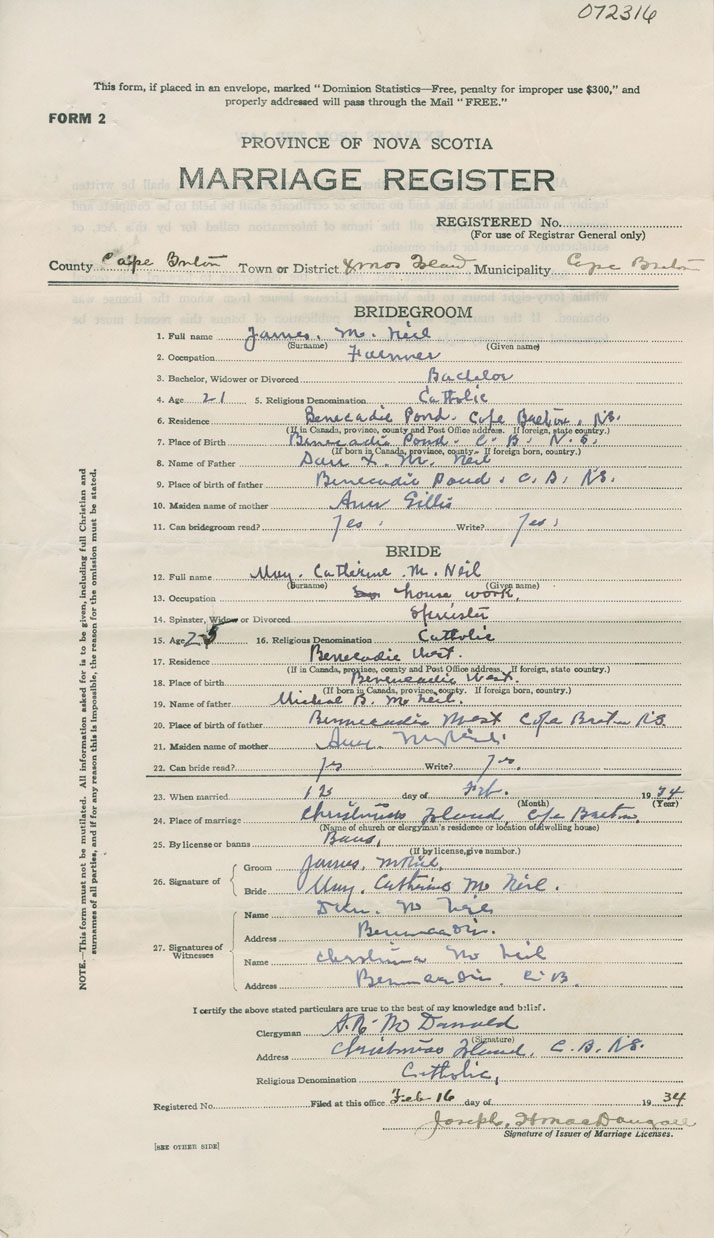 072316
This form, if placed in an envelope, marked "Dominion Statistics—Free, penalty for improper use $300," and
properly addressed will pass through the Mail "FREE."
FORM 2
PROVINCE OF NOVA SCOTIA
MARRIAGE REGISTER
REGISTERED No.
(For use of Registrar General only)
County Cape Breton Town or District Xmas Island Municipality Cape Breton
BRIDEGROOM
1. Full name James. Mc Neil
(Surname) (Given name)
2. Occupation Farmer
3. Bachelor, Widower or Divorced Bachelor
4. Age 21 5. Religious Denomination Catholic
6. Residence Benecadie Pond. Cape Breton, N.S.
(If in Canada, province, county and Post Office address. If foreign, state country.)
7. Place of Birth Benecadie Pond. C. B. N. S.
(If born in Canada, province, county. If foreign born, country.)
8. Name of Father Dan X. Mc Neil
9. Place of birth of father Benecadie Pond. C. B. N.S.
10. Maiden name of mother Ann Gillis
11. Can bridegroom read? Yes. Write? Yes.
BRIDE
12. Full name May. Catherine Mc Neil
(Surname) (Given name)
13. Occupation house work.
14. Spinster, Widow or Divorced Spinster
15. Age 25 16. Religious Denomination Catholic
17. Residence Benecadie West.
(If in Canada, province, county and Post Office address. If foreign, state country.)
18. Place of birth Benecadie West.
(If born in Canada, province, county. If foreign born, country.)
19. Name of father Micheal B. Mc Neil.
20. Place of birth of father Bennecadie West Cape Breton N.S
21. Maiden name of mother
22. Can bride read? yes Write? yes.
23. When married day of Feb. 1934
(Month) (Year)
24. Place of marriage Christmas Island, Cape Breton.
(Name of church or clergyman's residence or location of dwelling house)
25. By license or banns Bans,
(If by license, give number.)
26. Signature of
Groom James. McNeil,
Bride May. Catherine Mc Neil.
27. Signatures of Witnesses
Name Dan. Mc Neil
Address
Name Christina Mc Neil
Address C.B.
I certify the above stated particulars are true to the best of my knowledge and belief.
Clergyman Mc Donald
(Signature)
Address Christmas Island, C.B. N.S.
Religious Denomination Catholic,
Registered No. Filed at this office Feb 16 day of 1934
Joseph. H MacDougall
Signature of Issuer of Marriage Licenses.
[SEE OTHER SIDE]
NOTE.—This form must not be mutilated. All information asked for is to be given, including full Christian and
surnames of all parties, and if for any reason this is impossible, the reason for the omission must be stated.